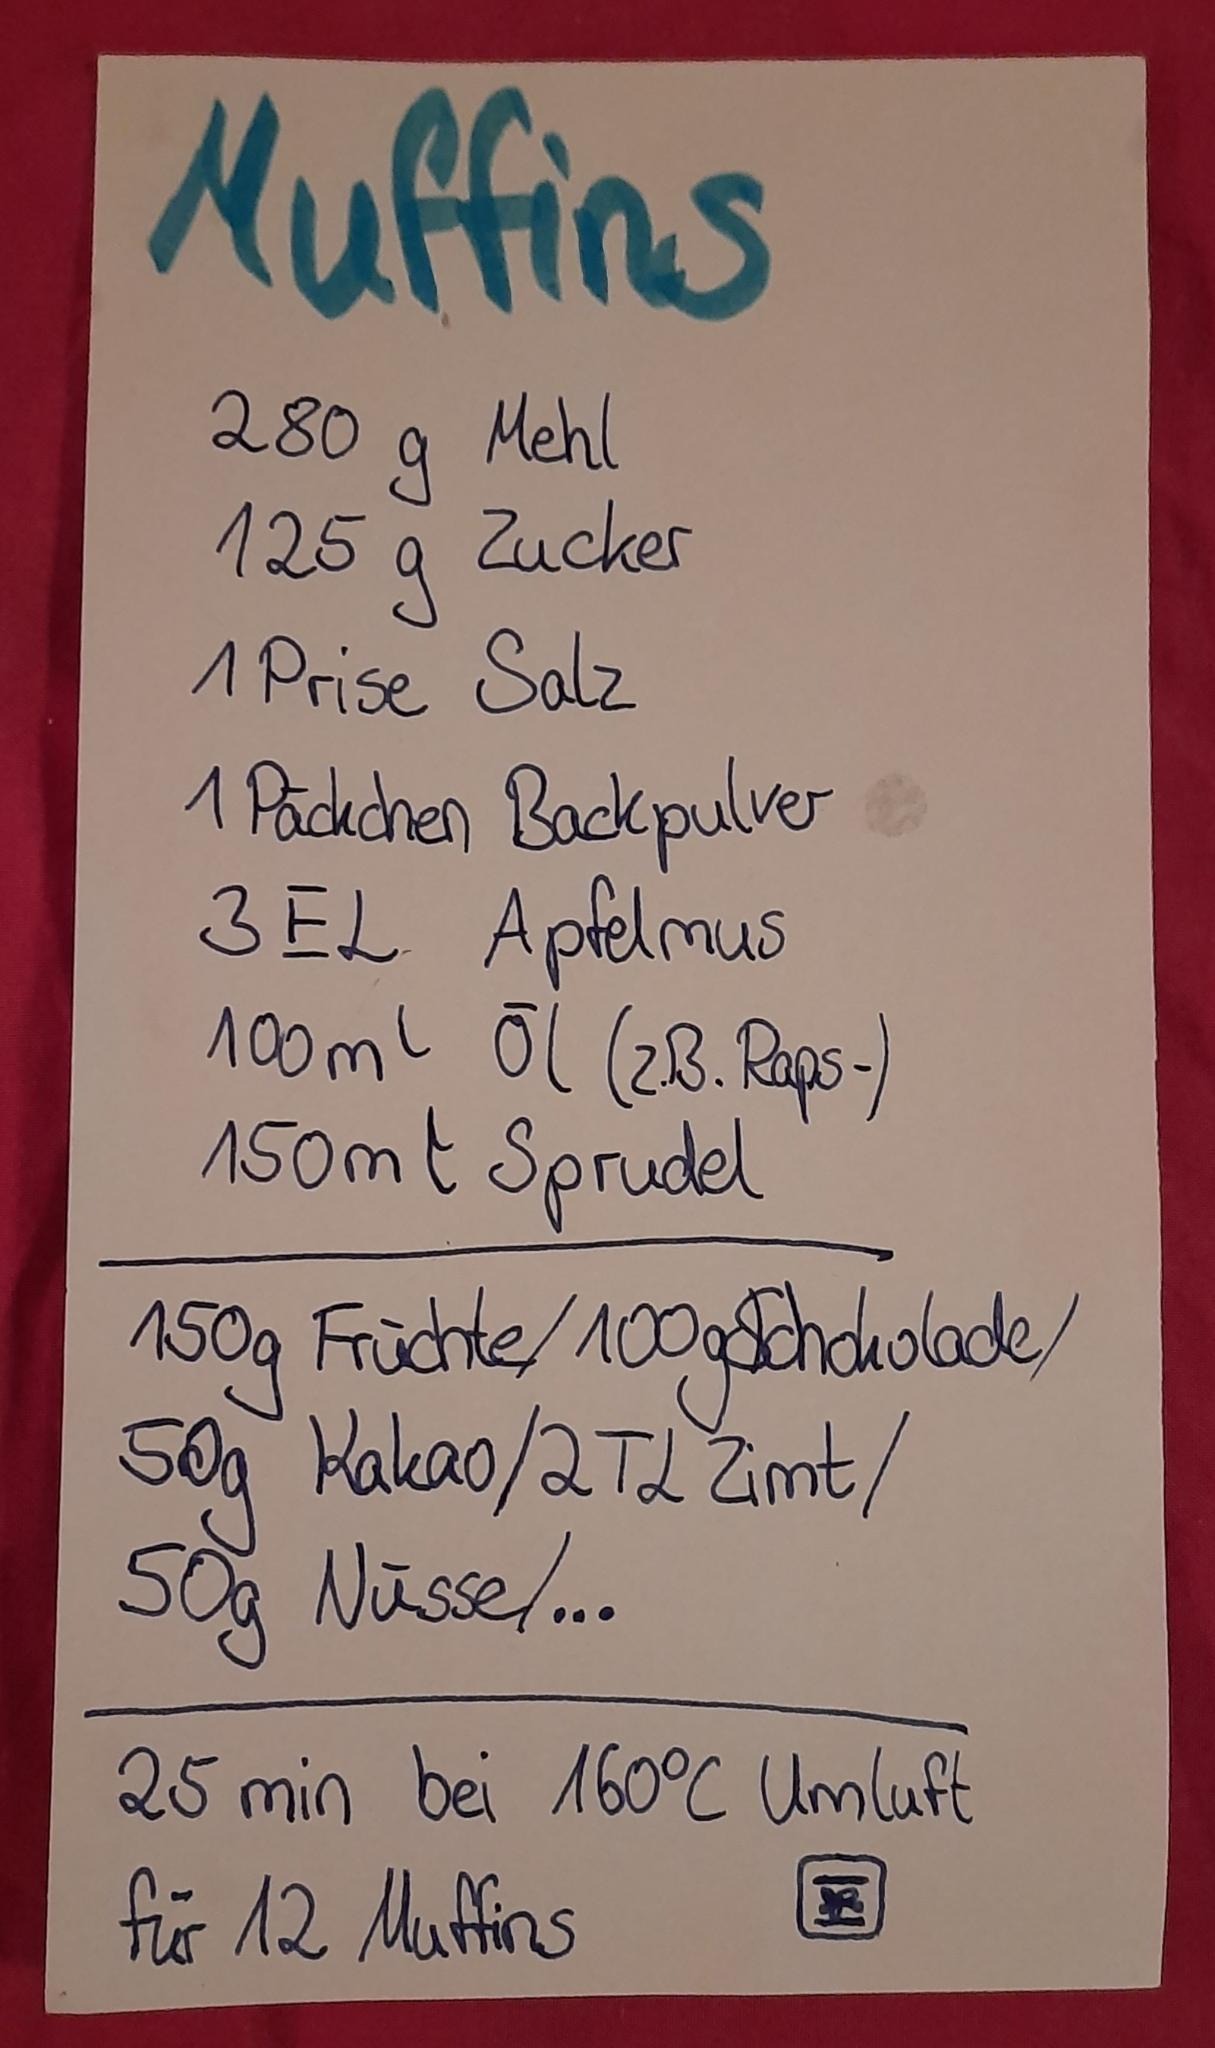 Muffins
280 g Mehl
125 g Zucker
1 Prise Salz
1 Päckchen Backpulver
3 EL Apfelmus
100ml Öl (z.B. Raps-)
150ml Sprudel
150g Früchte/100g Schokolade/
50g Kakao/2 TL Zimt/
50g Nüsse/...
25 min bei 160°C Umluft
für 12 Muffins